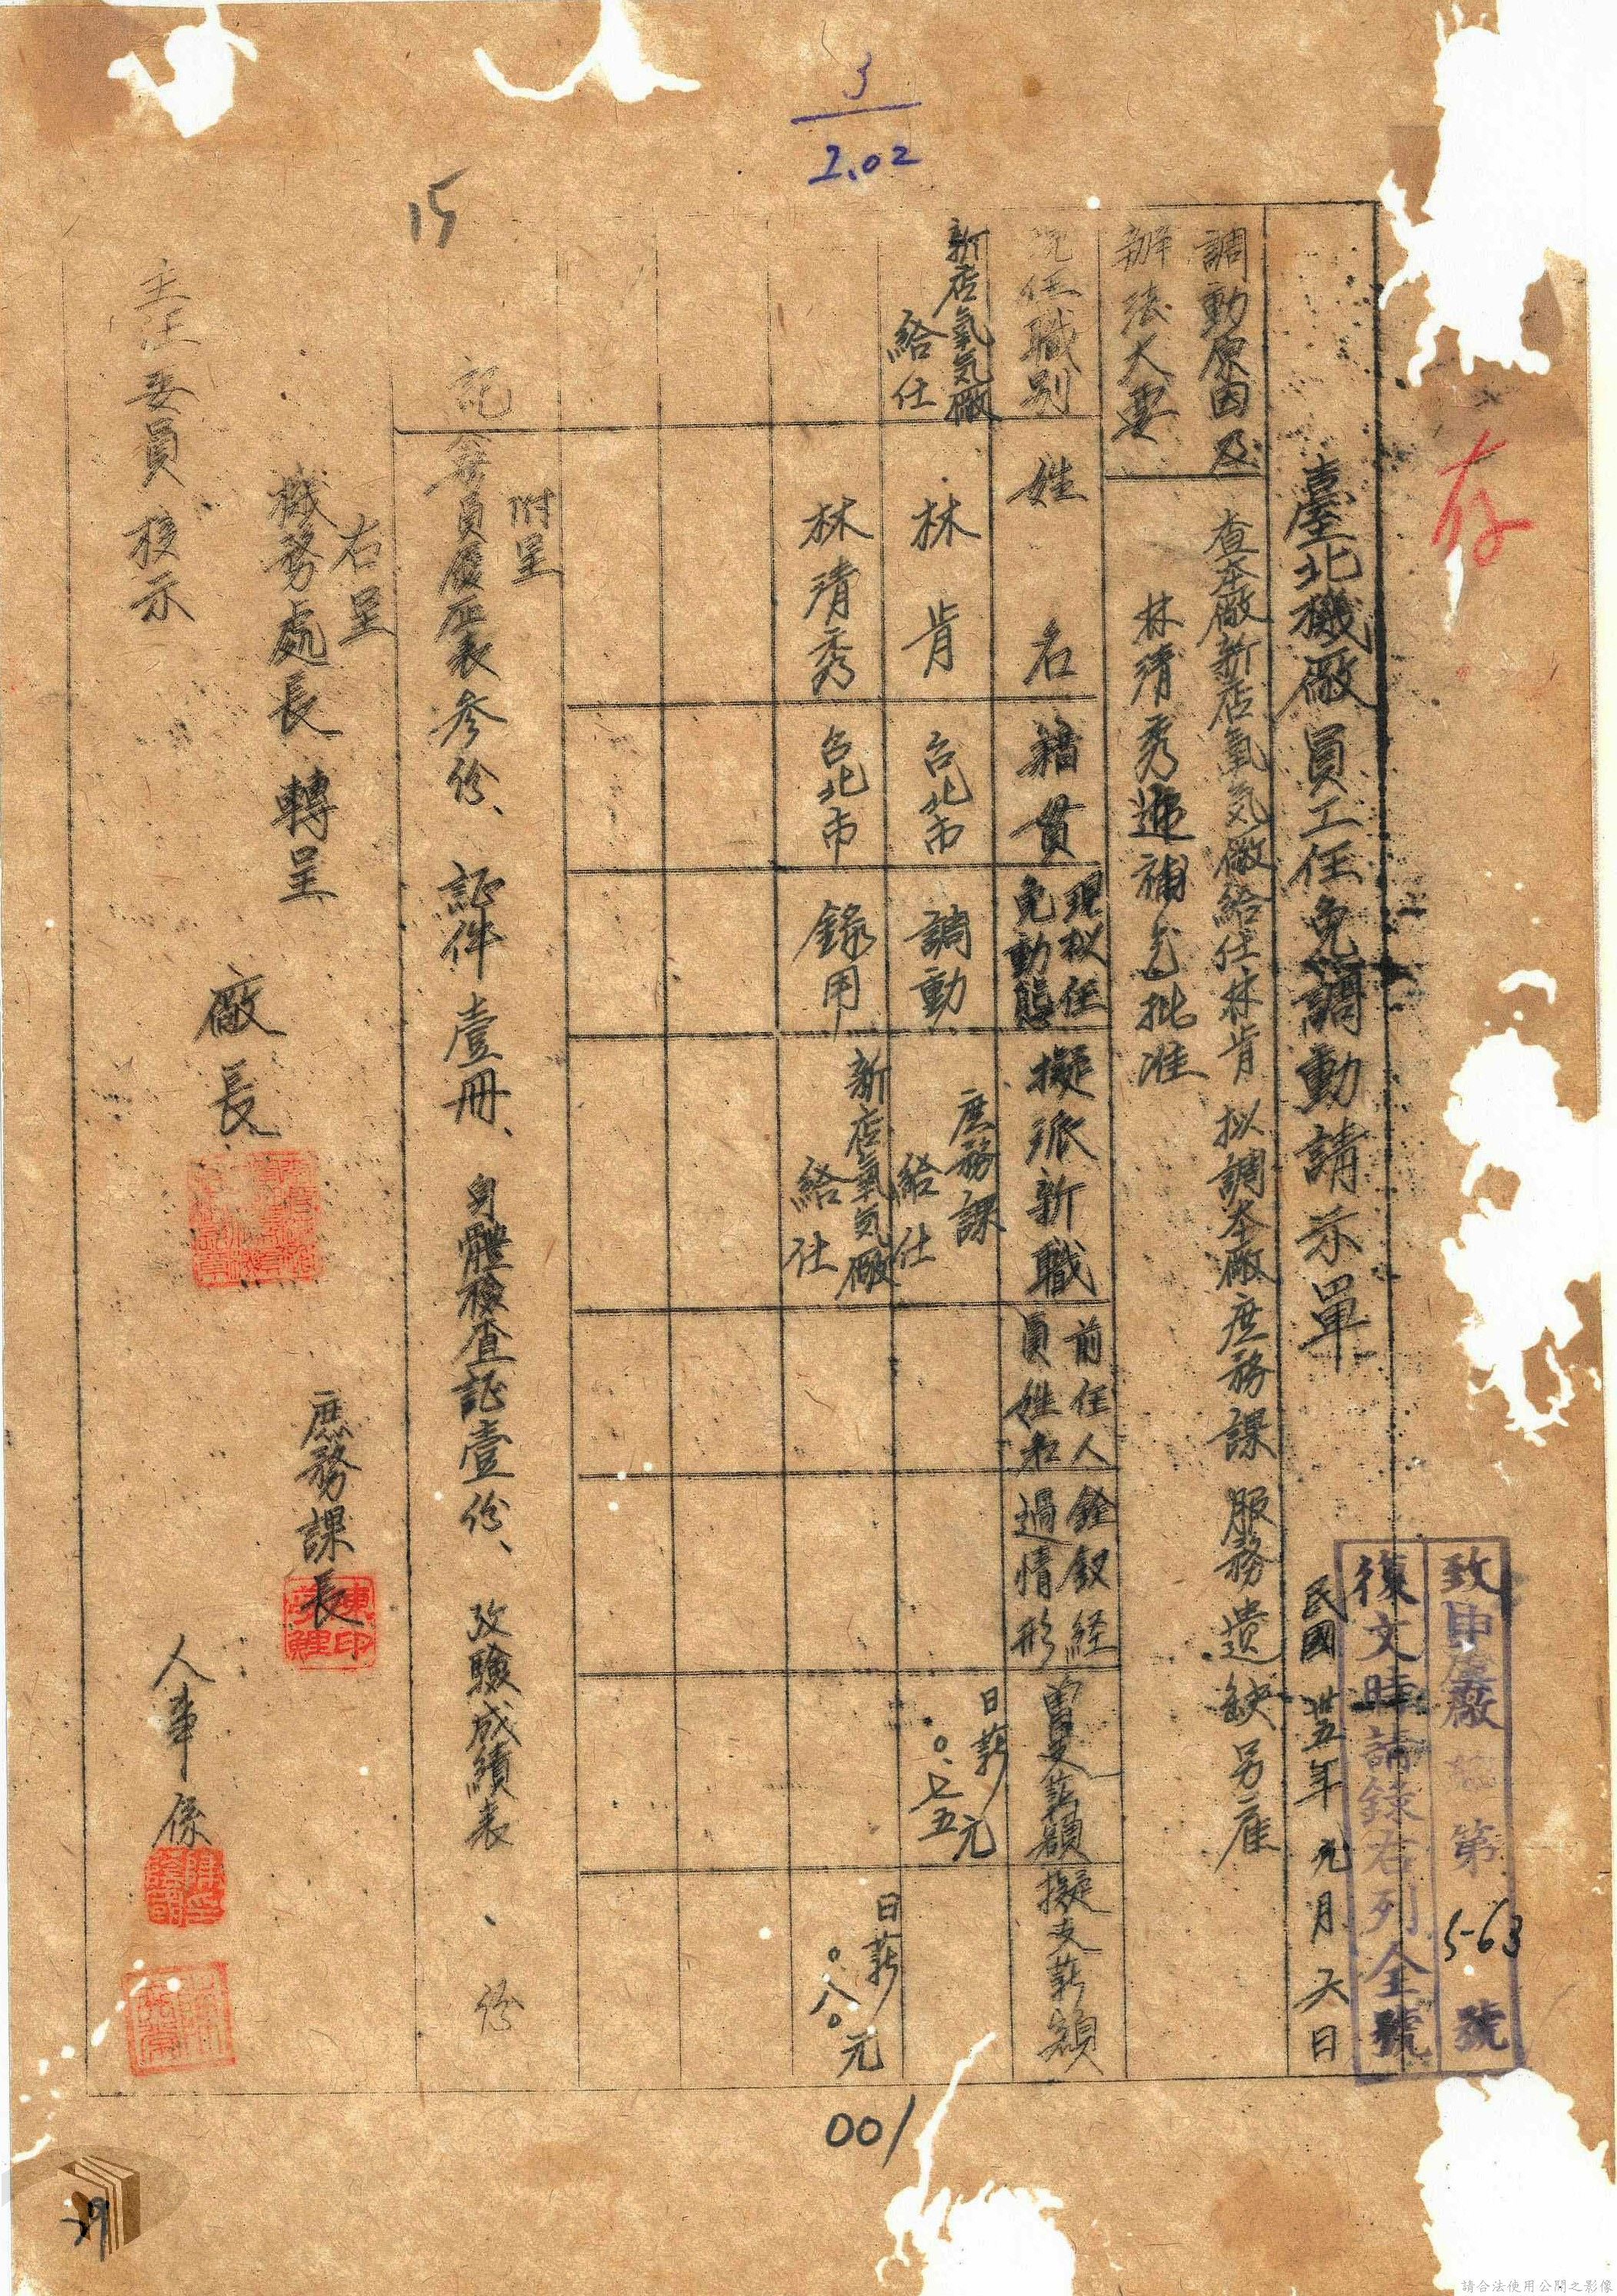 存
致申廠第5-63號
復文時請錄右列全號
臺北機廠員工任免調動請示單
民國卅五年元月六日
調動原因及
辦法大要
查本廠新店氧気廠給仕林肯拟調本廠庶務課服務遺缺另雇
林清秀遞補乞批准
現任職別
姓名
籍貫
現拟任
免動態
擬派新職
前任人
員姓名
銓叙経
過情形
曾支薪額
擬支薪額
新店氧気廠
給仕
林肯
台北市
調動
庶務課
給仕
日薪
〇.七五元
林清秀
台北市
錄用
新店氧気廠
給仕
日薪
〇八〇元
附呈
記
員履歴表参份、証件壹冊、身體檢查証壹份、攷驗成績表、份
右呈
機務處長轉呈
主任委員核示
廠長
庶務課長
人事係
3
2.02
15
001
29
請合法使用公開之影像